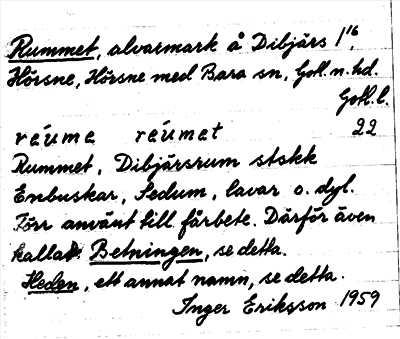 Rummet, alvarmark å Dibjärs 1¹⁶,
Hörsne, Hörsne med Bara sn, Gotl. n. hd.
Gotl. l.
réume réumet 22
Rummet, Dibjärsrum stskk
Enbuskar, Sedum, lavar o. dyl.
Förr använt till fårbete. Därför även
kallat Betningen, se detta.
Heden, ett annat namn, se detta.
Inger Eriksson 1959